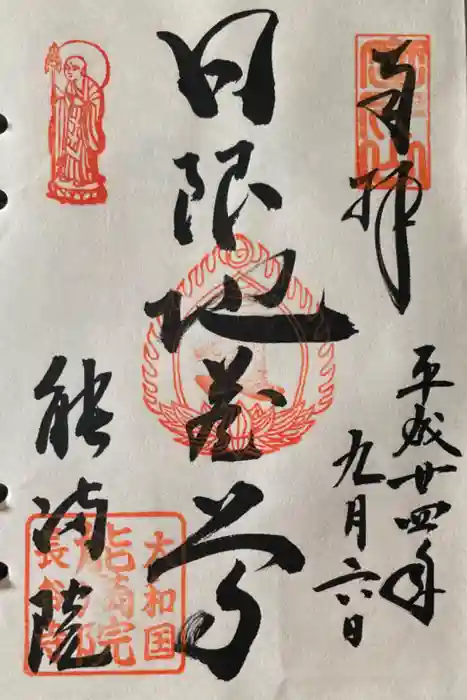 奉拝
平成廿四年
九月六日
日限地蔵尊
能満院
大和国
能満院
長谷寺